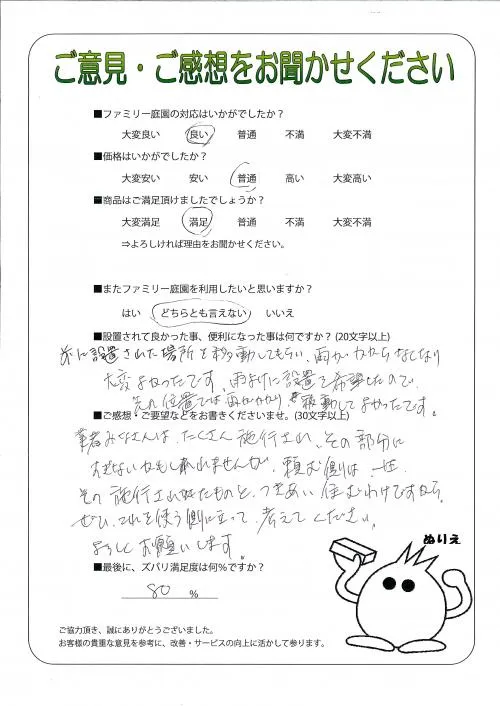 ご意見・ご感想をお聞かせください
■ファミリー庭園の対応はいかがでしたか？
大変良い 良い 普通 不満 大変不満
■価格はいかがでしたか？
大変安い 安い 普通 高い 大変高い
■商品はご満足頂けましたでしょうか？
大変満足 満足 普通 不満 大変不満
⇒よろしければ理由をお聞かせください。
■またファミリー庭園を利用したいと思いますか？
はい どちらとも言えない いいえ
■設置されて良かった事、便利になった事は何ですか？(20文字以上)
に設置された場所を移動してもらい、雨がかからなくなり
大変よかったです。雨よけに設置を希望したので、
位置では雨がかかり、移動してよかったです。
■ご感想・ご要望などをお書きくださいませ。(30文字以上)
業者みなさんは、たくさん施行され、その部分に
すぎないかもしれませんが、頼む側は一生
その施行されたものと、つきあい住むわけですから、
ぜひ、これを使う側に立って、考えてください。
よろしくお願いします。
■最後に、ズバリ満足度は何％ですか？
80 %
ぬりえ
ご協力頂き、誠にありがとうございました。
お客様の貴重な意見を参考に、改善・サービスの向上に活かして参ります。